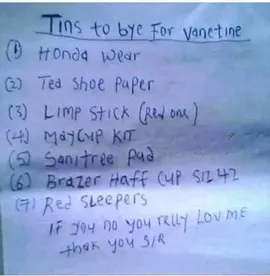 Tins to bye For vanetine
(1) Honda wear
(2) Tea Shoe Paper
(3) Limp Stick (Red one)
(4) MayCup KIT
(5) Sanitree Pad
(6) Brazer Haff Cup SIZ 42
(7) Red Sleepers
If you no you relly Lov ME
thak you S/R